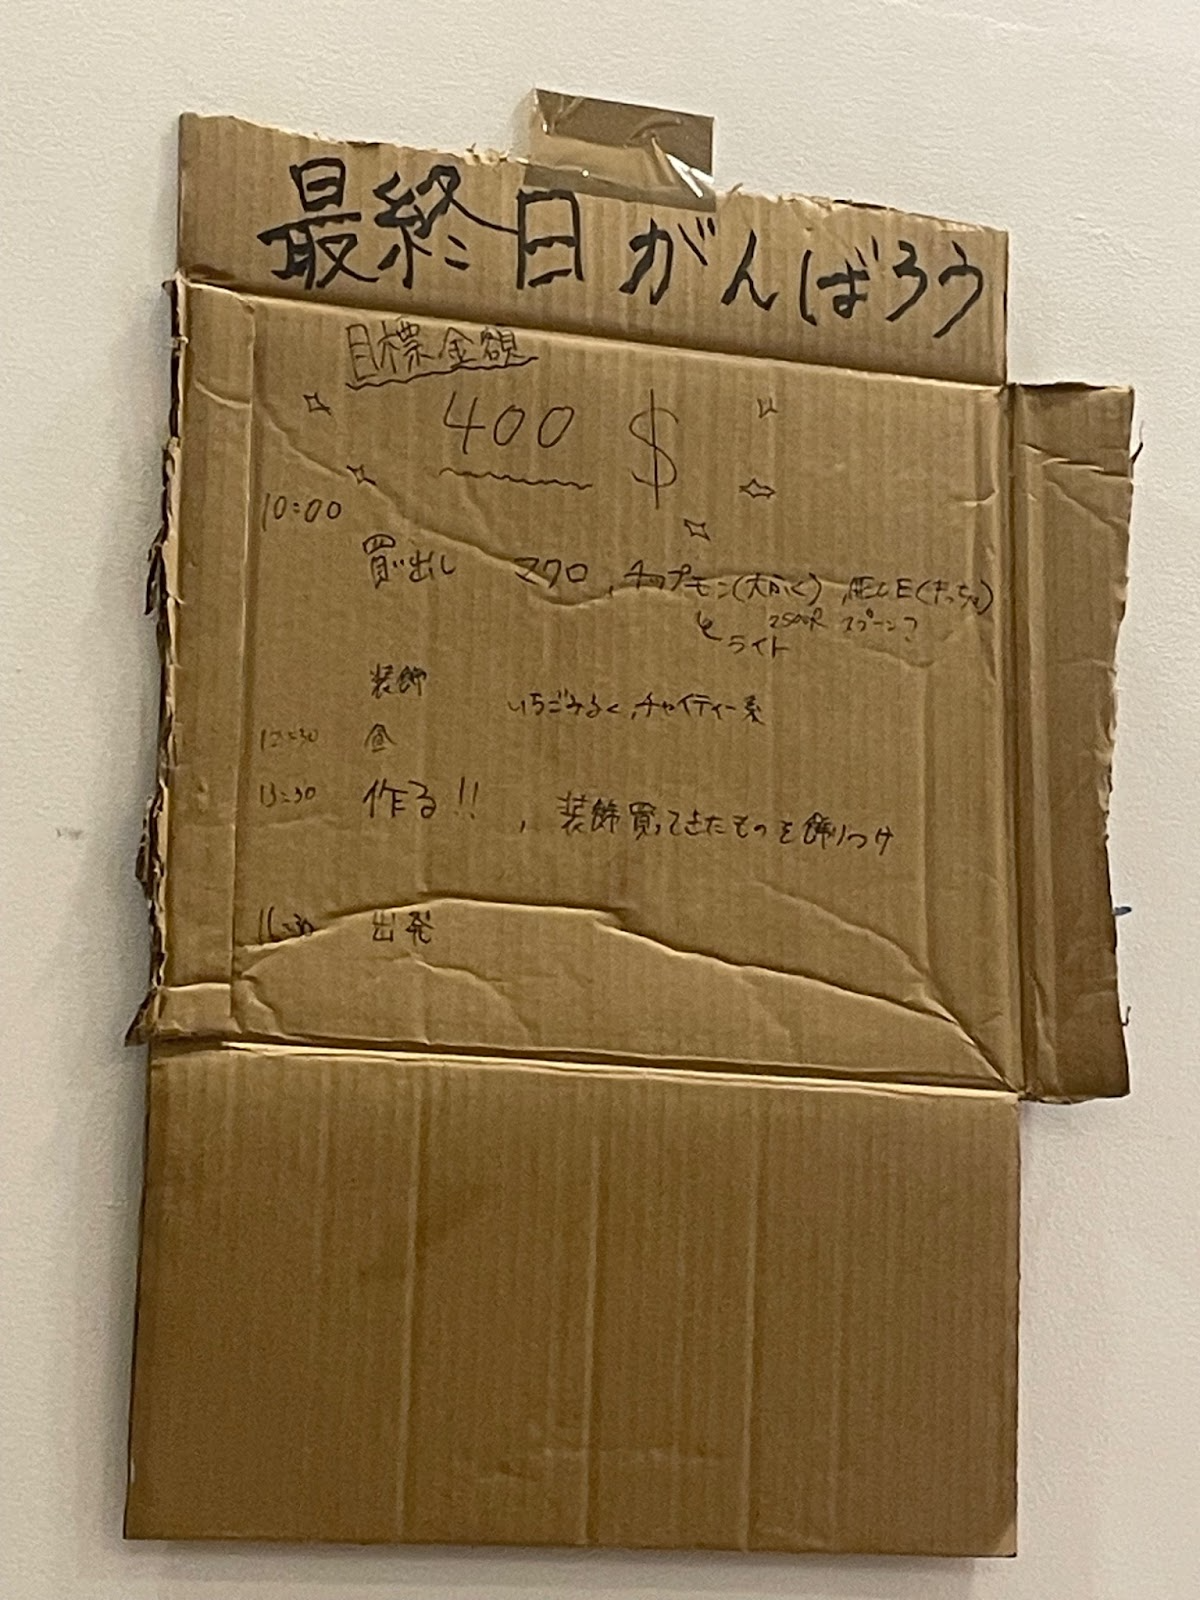 最終日がんばろう
目標金額
400 $
10:00
買い出し マクロ, チップモン(大かく),
ライト
装飾
いちごみるく, チャイティー系
12:30 昼
13:30 作る!! , 装飾買ってきたものを飾りつけ
16:30 出発